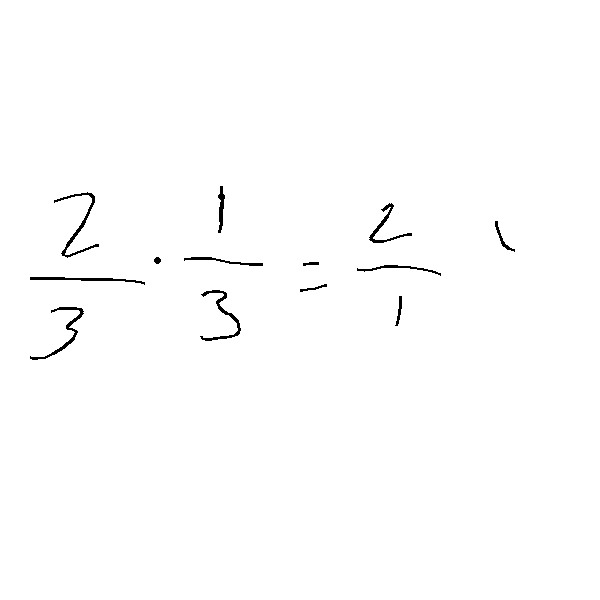 2/3 · 1/3 = 2/1